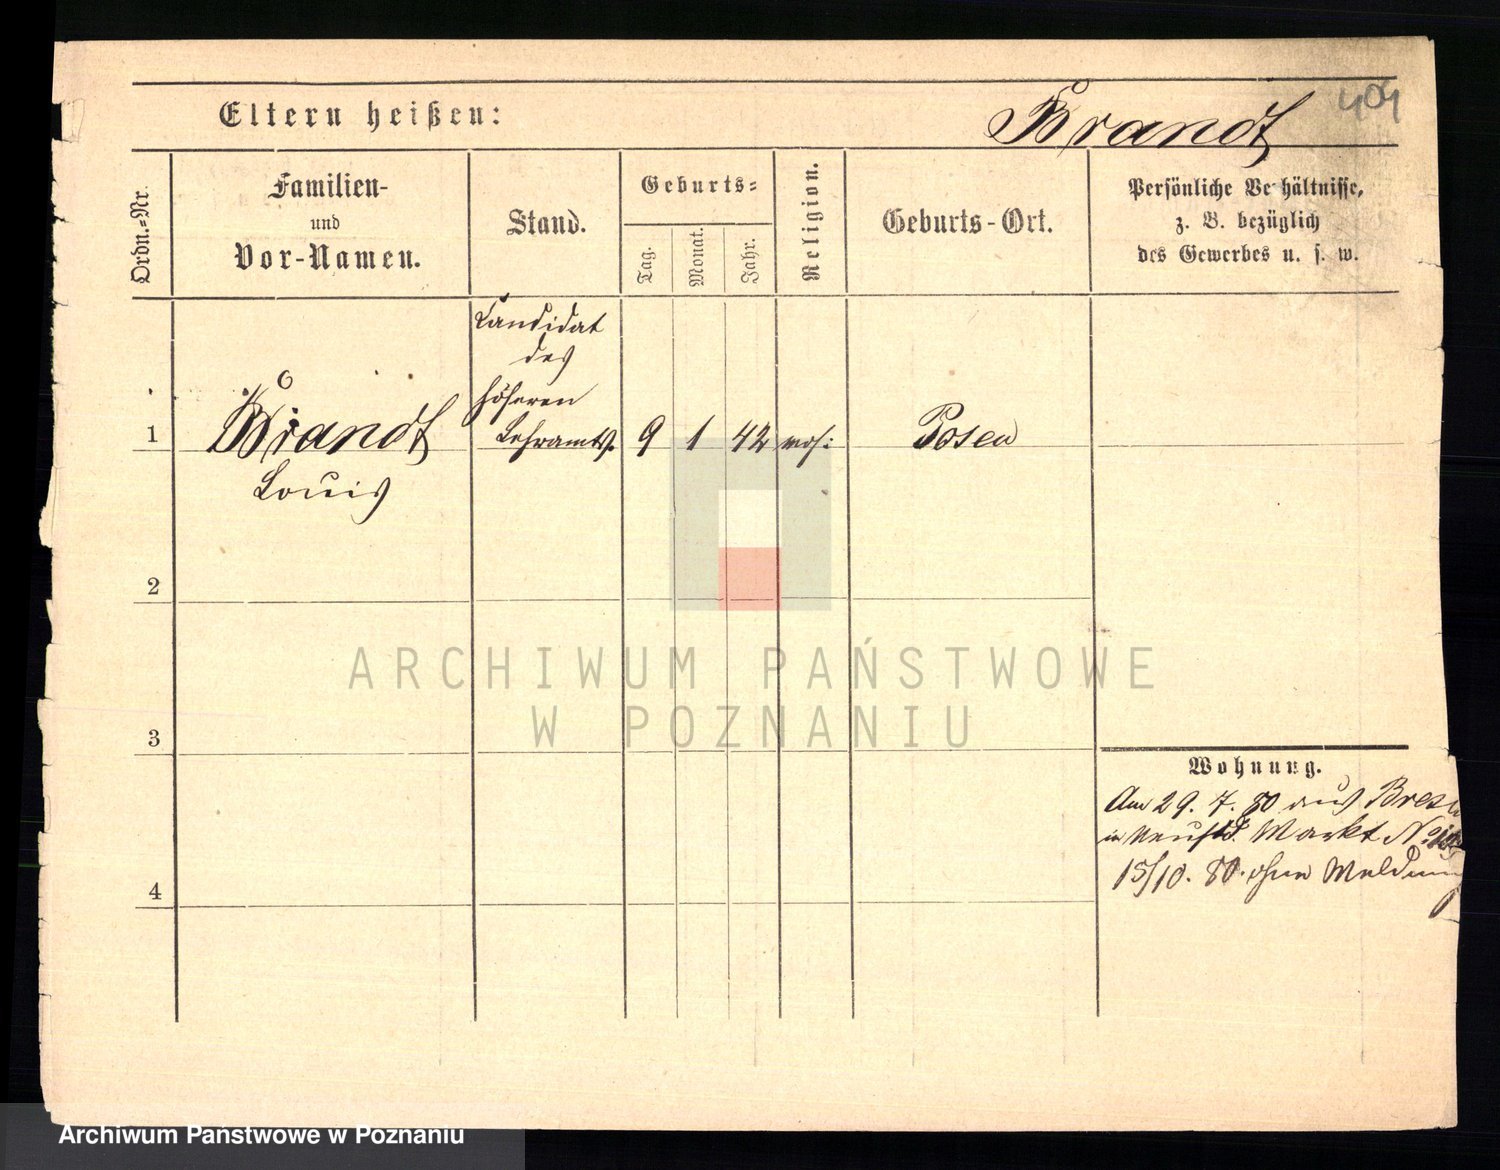 404
Eltern heißen: Brandt
Ordn.-Nr.
Familien-
und
Vor-Namen.
Stand.
Geburts-
Tag.
Monat.
Jahr.
Religion.
Geburts-Ort.
Persönliche Verhältnisse,
z. B. bezüglich
des Gewerbes u. s. w.
Candidat
des
höheren
Lehramts.
1 Brandt 9 1 42 mos: Posen
Louis
2
3
4
Wohnung.
Am 29. 7. 80 aus Bresl
in Neust. Markt No
15/10. 80. ohne Meldung
ARCHIWUM PAŃSTWOWE
W POZNANIU
Archiwum Państwowe w Poznaniu